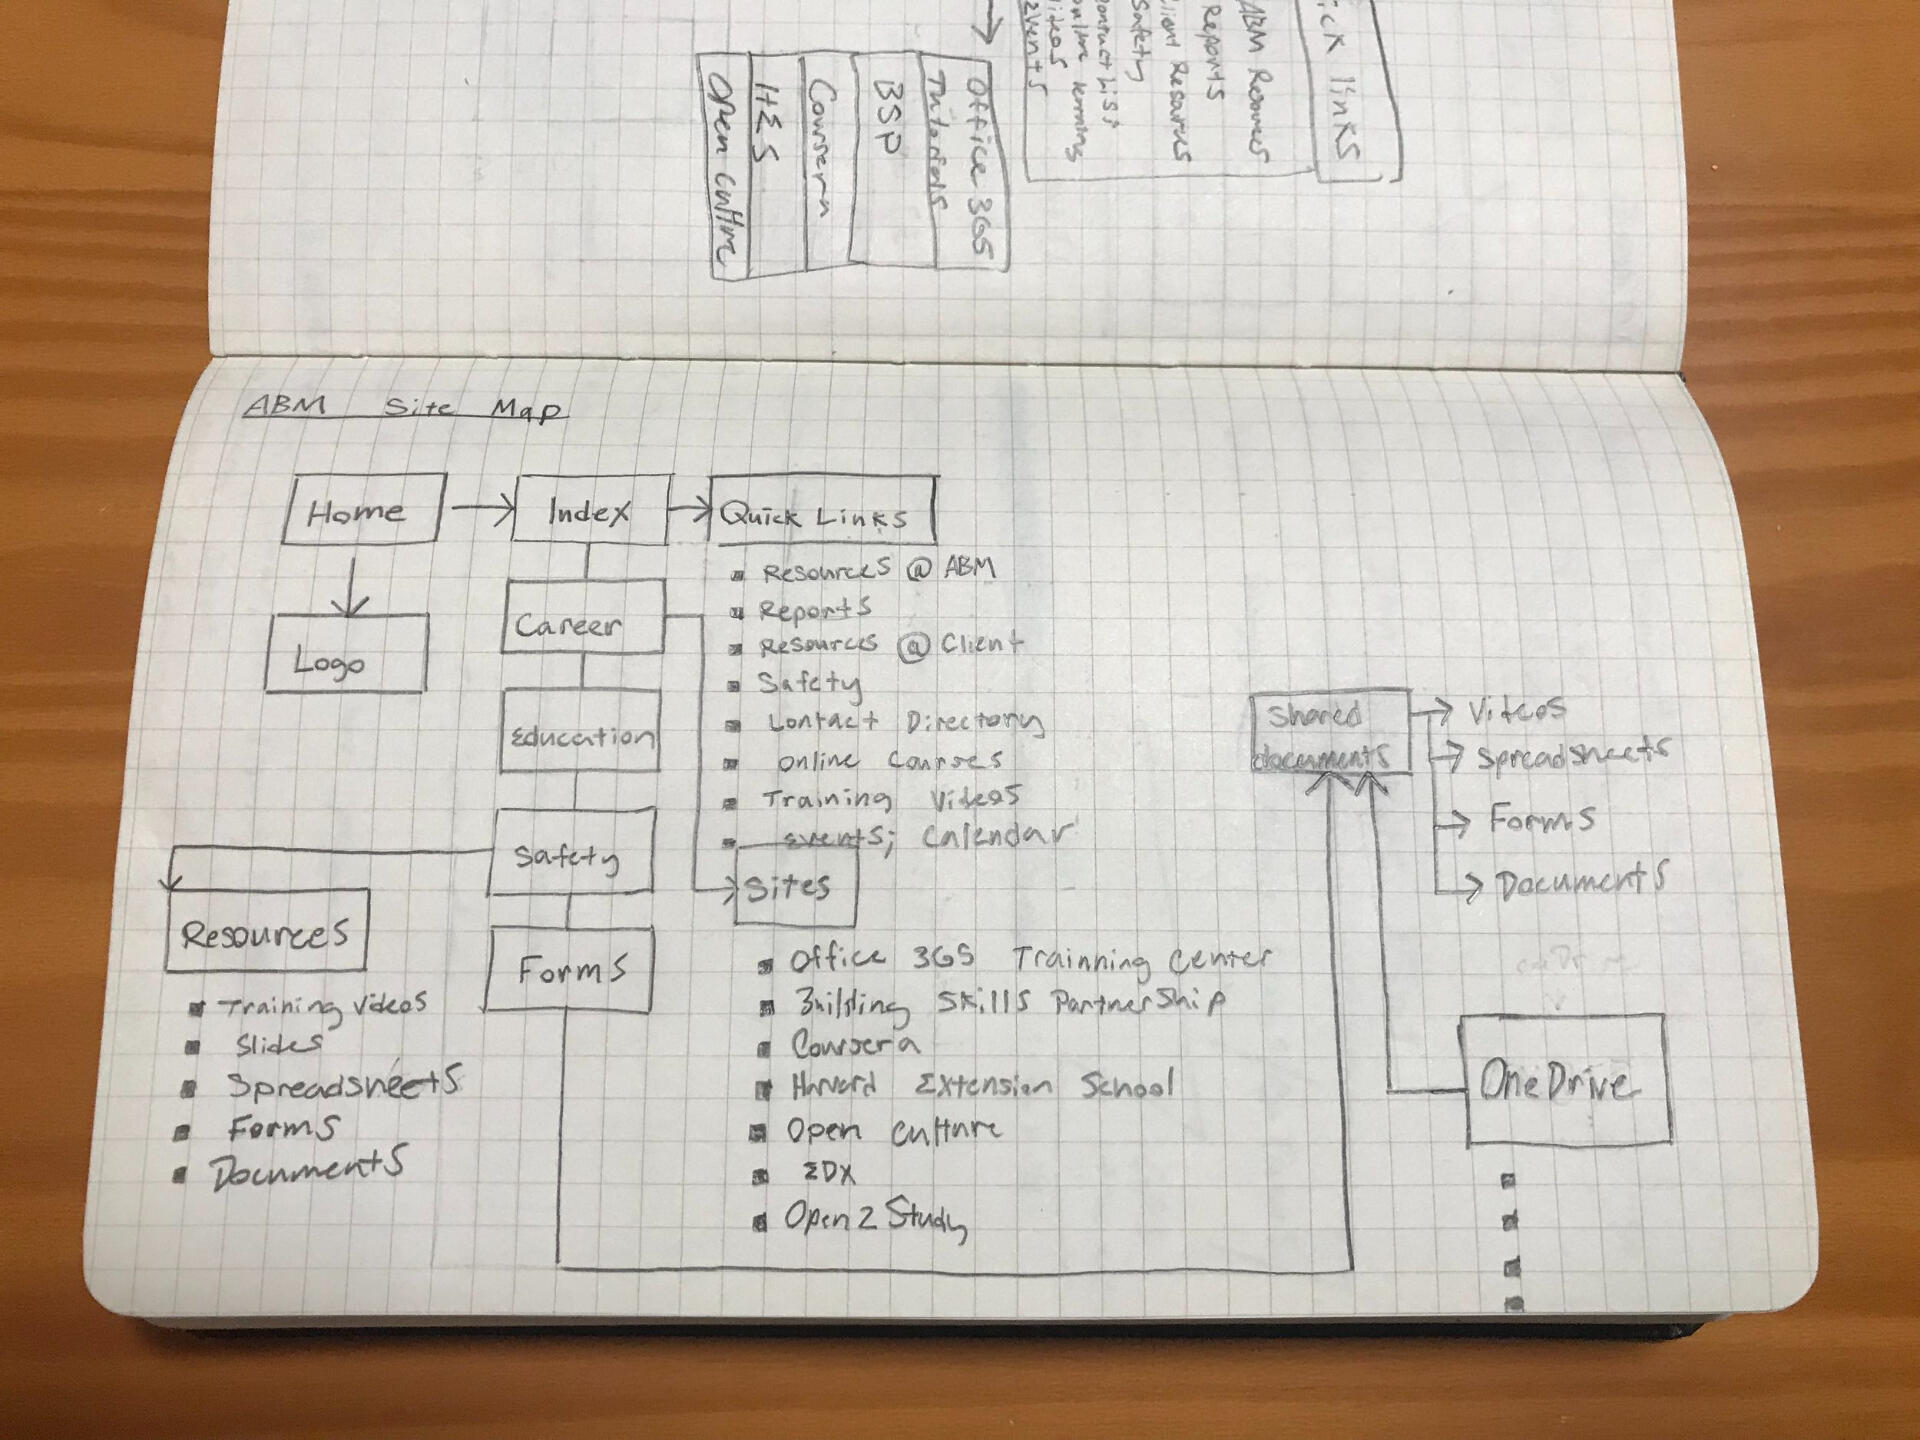 ick links
ABM Resources
Reports
Client Resources
Safety
Contact List
Online
Events
Office 365
Tutorials
BSP
Coursera
HES
Open Culture
ABM Site Map
Home
Index
Quick Links
Resources @ ABM
Reports
Resources @ Client
Safety
Contact Directory
Online Courses
Training Videos
Events; Calendar
Logo
Career
Education
Safety
Forms
Resources
Training Videos
Slides
Spreadsheets
Forms
Documents
Sites
Office 365 Trainning Center
Building Skills Partnership
Coursera
Harvard Extension School
Open Culture
EDX
Open 2 Study
Shared
documents
Videos
Spreadsheets
Forms
Documents
OneDrive